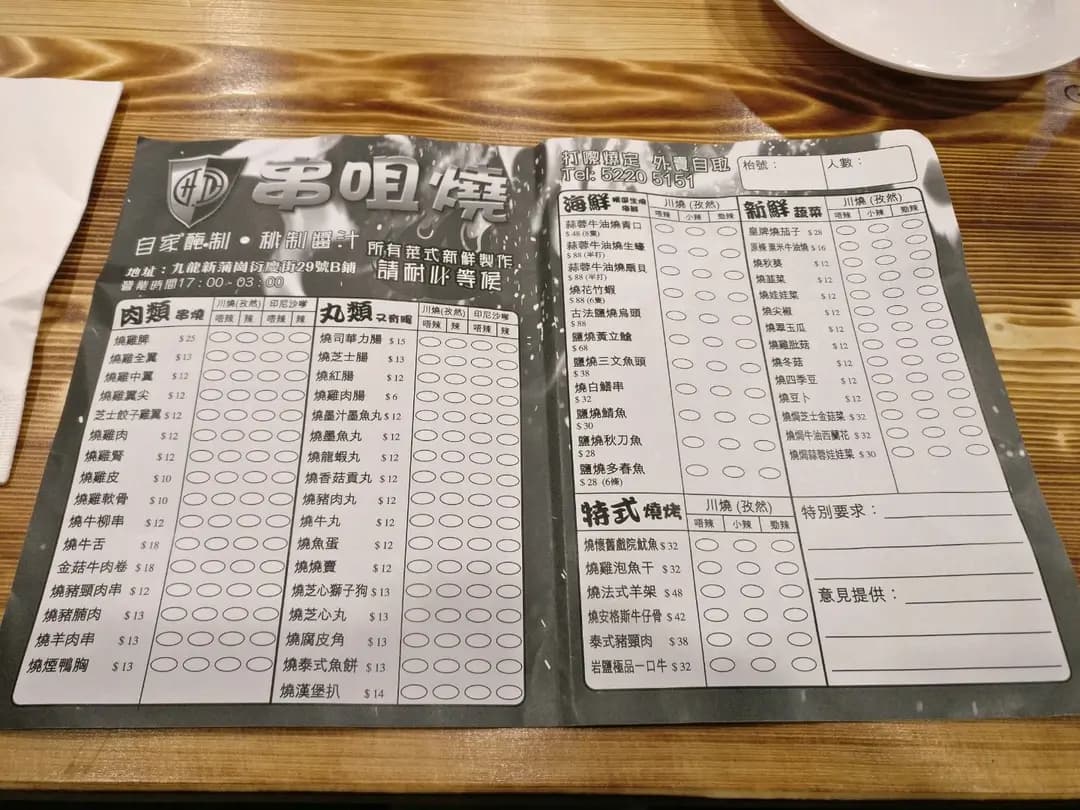 串咀燒
自家醃制•秘制醬汁
所有菜式新鮮製作
請耐心等候
地址：九龍新蒲崗衍慶街29號B鋪
營業時間17:00-03:00
肉類 串燒 川燒(孜然) 印尼沙嗲
唔辣 辣 唔辣 辣
燒雞髀 $25
燒雞全翼 $13
燒雞中翼 $12
燒雞翼尖 $12
芝士餃子雞翼 $12
燒雞肉 $12
燒雞腎 $12
燒雞皮 $10
燒雞軟骨 $10
燒牛柳串 $12
燒牛舌 $18
金菇牛肉卷 $18
燒豬頸肉串 $12
燒豬腩肉 $13
燒羊肉串 $13
燒煙鴨胸 $13
丸類 川燒(孜然) 印尼沙嗲
唔辣 辣 唔辣 辣
燒司華力腸 $15
燒芝士腸 $13
燒紅腸 $12
燒雞肉腸 $6
燒墨汁墨魚丸 $12
燒墨魚丸 $12
燒龍蝦丸 $12
燒香菇貢丸 $12
燒豬肉丸 $12
燒牛丸 $12
燒魚蛋 $12
燒燒賣 $12
燒芝心獅子狗 $13
燒芝心丸 $13
燒腐皮角 $13
燒泰式魚餅 $13
燒漢堡扒 $14
打嚟爆定 外賣自取
Tel: 5220 5151
枱號：
人數：
海鮮 川燒(孜然)
唔辣 小辣 勁辣
蒜蓉牛油燒青口
$48 (8隻)
蒜蓉牛油燒生蠔
$88 (半打)
蒜蓉牛油燒扇貝
$88 (半打)
燒花竹蝦
$88 (6隻)
古法鹽燒烏頭
$88
鹽燒黃立鱠
$68
鹽燒三文魚頭
$38
燒白鱔串
$32
鹽燒鯖魚
$30
鹽燒秋刀魚
$28
鹽燒多春魚
$28 (6條)
新鮮 蔬菜 川燒(孜然)
唔辣 小辣 勁辣
皇牌燒茄子 $28
原條粟米牛油燒 $16
燒秋葵 $12
燒韮菜 $12
燒娃娃菜 $12
燒尖椒 $12
燒翠玉瓜 $12
燒雞肶菇 $12
燒冬菇 $12
燒四季豆 $12
燒豆卜 $12
燒焗芝士金菇菜 $32
燒焗牛油西蘭花 $32
燒焗蒜蓉娃娃菜 $30
特式 燒烤 川燒(孜然)
唔辣 小辣 勁辣
燒懷舊戲院魷魚 $32
燒雞泡魚干 $32
燒法式羊架 $48
燒安格斯牛仔骨 $42
泰式豬頸肉 $38
岩鹽極品一口牛 $32
特別要求：
意見提供：